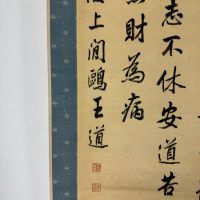 志不休安道苦
財為病
上閒鷗王道